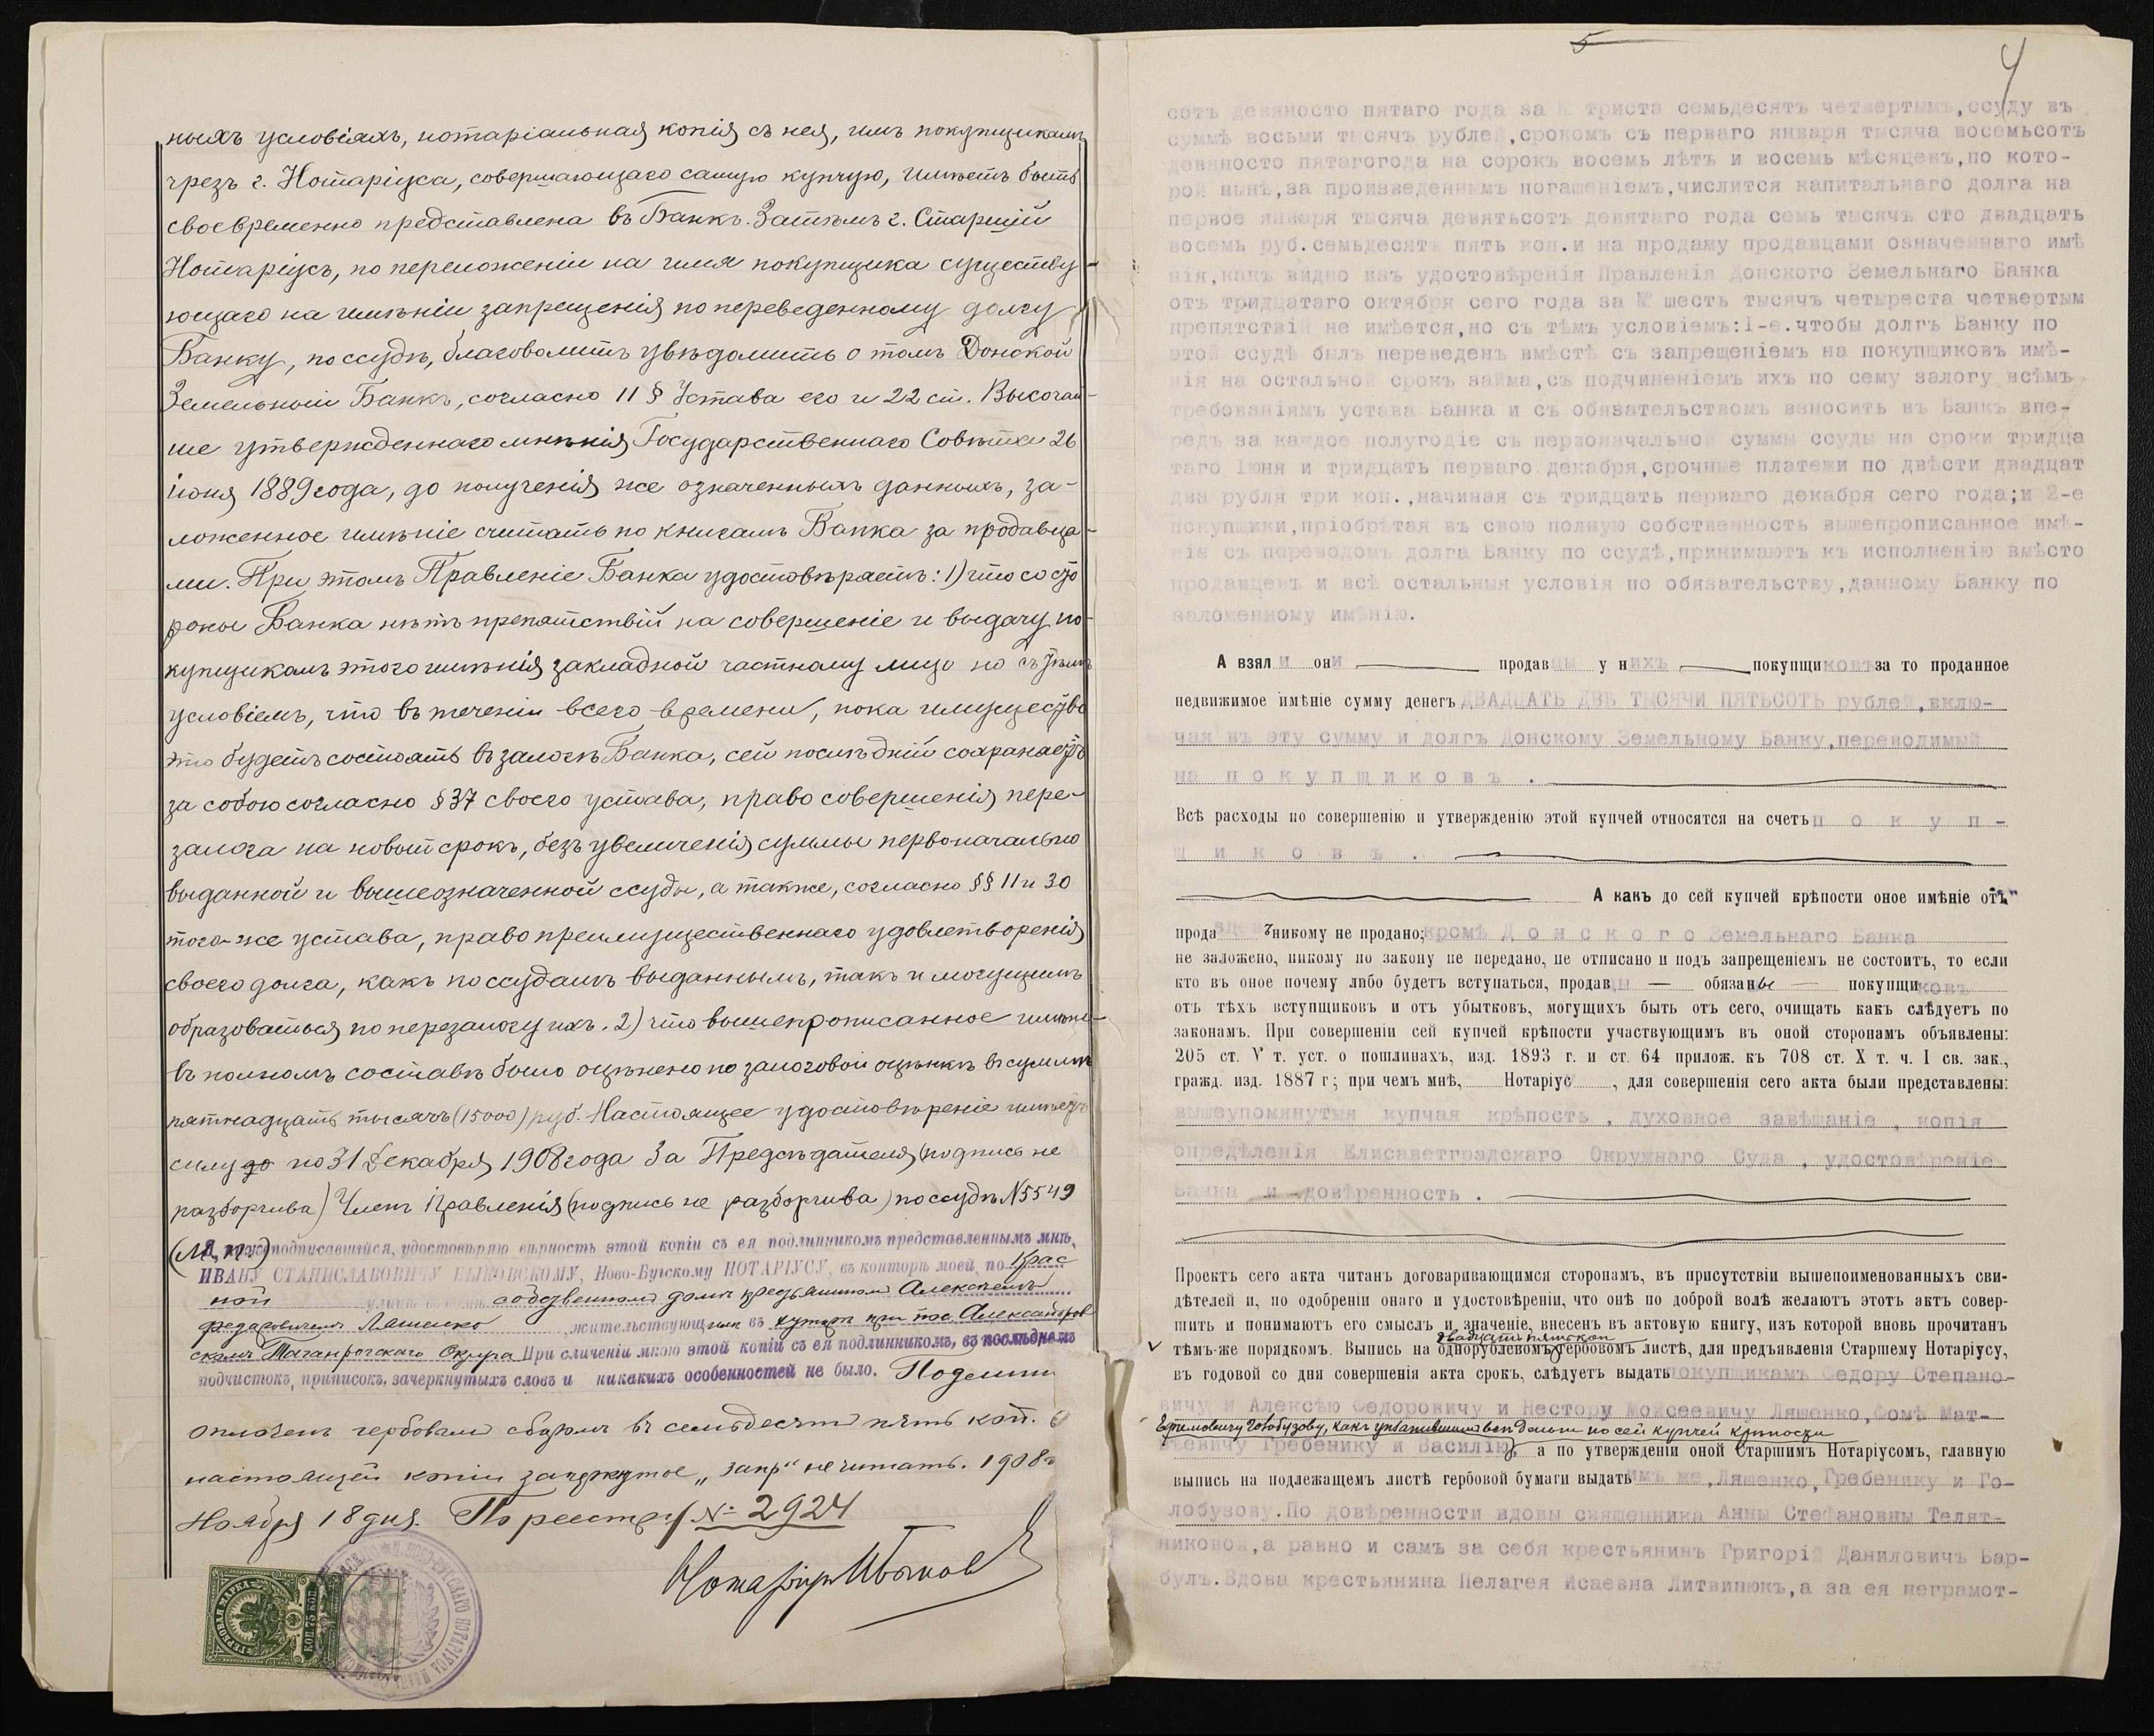 ныхъ условіяхъ, нотаріальная копія съ нея, имъ покупщикамъ
чрезъ г. Нотаріуса, совершающаго самую купчую, имѣетъ быть
своевременно представлена въ Банкъ. Затѣмъ г. Старшій
Нотаріусъ, по переложеніи на имя покупщика существу-
ющаго на имѣніи запрещенія по переведенному долгу
Банку, по ссудѣ, благоволитъ увѣдомить о томъ Донской
Земельный Банкъ, согласно 11 § Устава его и 22 ст. Высочай-
ше утвержденнаго мнѣнія Государственнаго Совѣта 26
іюня 1889 года, до полученія же означенныхъ данныхъ, за-
ложенное имѣніе считать по книгамъ Банка за продавца-
ми. При этомъ Правленіе Банка удостовѣряетъ: 1) что со сто
роны Банка нѣтъ препятствій на совершеніе и выдачу по-
купщикамъ этого имѣнія закладной частному лицу но съ тѣмъ
условіемъ, что въ теченіи всего времени, пока имущество
это будетъ состоять въ залогѣ Банка, сей послѣдній сохраняетъ
за собою согласно § 37 своего устава, право совершенія пере-
залога на новый срокъ, безъ увеличенія суммы первоначально
выданной и вышеозначенной ссуды, а также, согласно §§ 11 и 30
того-же устава, право преимущественнаго удовлетворенія
своего долга, какъ по ссудамъ выданнымъ, такъ и могущимъ
образоваться по перезалогу ихъ. 2) что вышепрописанное имѣніе
въ полномъ составѣ было оцѣнено по залоговой оцѣнкѣ въ суммѣ
пятнадцать тысячъ (15000) руб. Настоящее удостовѣреніе имѣетъ
силу до по 31 Декабря 1908 года За Предсѣдателя (подпись не
разборчива) Членъ Правленія (подпись не разборчива) по ссудѣ № 5549
(М. П.) подписавшійся, удостовѣряю вѣрность этой копіи съ ея подлинникомъ представленнымъ мнѣ,
ИВАНУ СТАНИСЛАВОВИЧУ БЫКОВСКОМУ, Ново-Бугскому НОТАРІУСУ, въ конторѣ моей, по Крас
ной улицѣ собственномъ домѣ крестьяниномъ Алексѣемъ
Федоровичемъ Ляшенко, жительствующимъ въ хуторѣ при пос. Александров
скомъ Таганрогскаго Округа При сличеніи мною этой копіи съ ея подлинникомъ, въ послѣднемъ
подчистокъ, приписокъ, зачеркнутыхъ словъ и никакихъ особенностей не было. Подлин
оплаченъ гербовымъ сборомъ въ семьдесятъ пять коп. В
настоящей копіи зачеркнутое „запр" не читать. 1908 г
Ноября 18 дня. По реестру № 2924
Нотаріусъ
ГЕРБОВАЯ МАРКА
75 КОП.
5
4
сотъ девяносто пятаго года за № триста семьдесятъ четвертымъ, ссуду въ
суммѣ восьми тысячъ рублей, срокомъ съ перваго января тысяча восемьсотъ
девяносто пятагогода на сорокъ восемь лѣтъ и восемь мѣсяцевъ, по кото-
рой нынѣ, за произведеннымъ погашеніемъ, числится капитальнаго долга на
первое января тысяча девятьсотъ девятаго года семь тысячъ сто двадцать
восемь руб. семьдесятъ пять коп. и на продажу продавцами означеннаго имѣ
нія, какъ видно изъ удостовѣренія Правленія Донского Земельнаго Банка
отъ тридцатаго октября сего года за № шесть тысячъ четыреста четвертым
препятствій не имѣется, но съ тѣмъ условіемъ: I-е. чтобы долгъ Банку по
этой ссудѣ былъ переведенъ вмѣстѣ съ запрещеніемъ на покупщиковъ имѣ-
нія на остальной срокъ займа, съ подчиненіемъ ихъ по сему залогу всѣмъ
требованіямъ устава Банка и съ обязательствомъ вносить въ Банкъ впе-
редъ за каждое полугодіе съ первоначальной суммы ссуды на сроки тридца
таго Іюня и тридцать перваго декабря, срочные платежи по двѣсти двадцат
два рубля три коп., начиная съ тридцать перваго декабря сего года; и 2-е
покупщики, пріобрѣтая въ свою полную собственность вышепрописанное имѣ-
ніе съ переводомъ долга Банку по ссудѣ, принимаютъ къ исполненію вмѣсто
продавцевъ и всѣ остальныя условія по обязательству, данному Банку по
заложенному имѣнію.
А взяли они продавцы у нихъ покупщиковъ за то проданное
недвижимое имѣніе сумму денегъ ДВАДЦАТЬ ДВѢ ТЫСЯЧИ ПЯТЬСОТЪ рублей, вклю-
чая въ эту сумму и долгъ Донскому Земельному Банку, переводимый
на покупщиковъ.
Всѣ расходы по совершенію и утвержденію этой купчей относятся на счетъ покуп-
щиковъ.
А какъ до сей купчей крѣпости оное имѣніе отъ
продавцевъ никому не продано; кромѣ Донского Земельнаго Банка
не заложено, никому по закону не передано, не отписано и подъ запрещеніемъ не состоитъ, то если
кто въ оное почему либо будетъ вступаться, продавцы — обязаны — покупщиковъ
отъ тѣхъ вступщиковъ и отъ убытковъ, могущихъ быть отъ сего, очищать какъ слѣдуетъ по
законамъ. При совершеніи сей купчей крѣпости участвующимъ въ оной сторонамъ объявлены:
205 ст. V т. уст. о пошлинахъ, изд. 1893 г. и ст. 64 прилож. къ 708 ст. X т. ч. I св. зак.,
гражд. изд. 1887 г; при чемъ мнѣ, Нотаріус, для совершенія сего акта были представлены:
вышеупомянутыя купчая крѣпость, духовное завѣщаніе, копія
опредѣленія Елисаветградскаго Окружнаго Суда, удостовѣреніе
Банка и довѣренность.
Проектъ сего акта читанъ договаривающимся сторонамъ, въ присутствіи вышепоименованныхъ сви-
дѣтелей и, по одобреніи онаго и удостовѣреніи, что онѣ по доброй волѣ желаютъ этотъ актъ совер-
шить и понимаютъ его смыслъ и значеніе, внесенъ въ актовую книгу, изъ которой вновь прочитанъ
двадцатипятикоп
тѣмъ-же порядкомъ. Выпись на однорублевомъ гербовомъ листѣ, для предъявленія Старшему Нотаріусу,
въ годовой со дня совершенія акта срокъ, слѣдуетъ выдать покупщикамъ Федору Степано-
вичу и Алексѣю Федоровичу и Нестору Мойсеевичу Ляшенко, Фомѣ Мат-
Ефимовичу Голобузову, какъ уплатившимъ всѣ деньги по сей купчей крѣпости
вѣевичу Гребенику и Василію, а по утвержденіи оной Старшимъ Нотаріусомъ, главную
выпись на подлежащемъ листѣ гербовой бумаги выдать имъ же, Ляшенко, Гребенику и Го-
лобузову. По довѣренности вдовы священника Анны Стефановны Телят-
никовой, а равно и самъ за себя крестьянинъ Григорій Даниловичъ Бар-
булъ. Вдова крестьянина Пелагея Исаевна Литвинюкъ, а за ея неграмот-